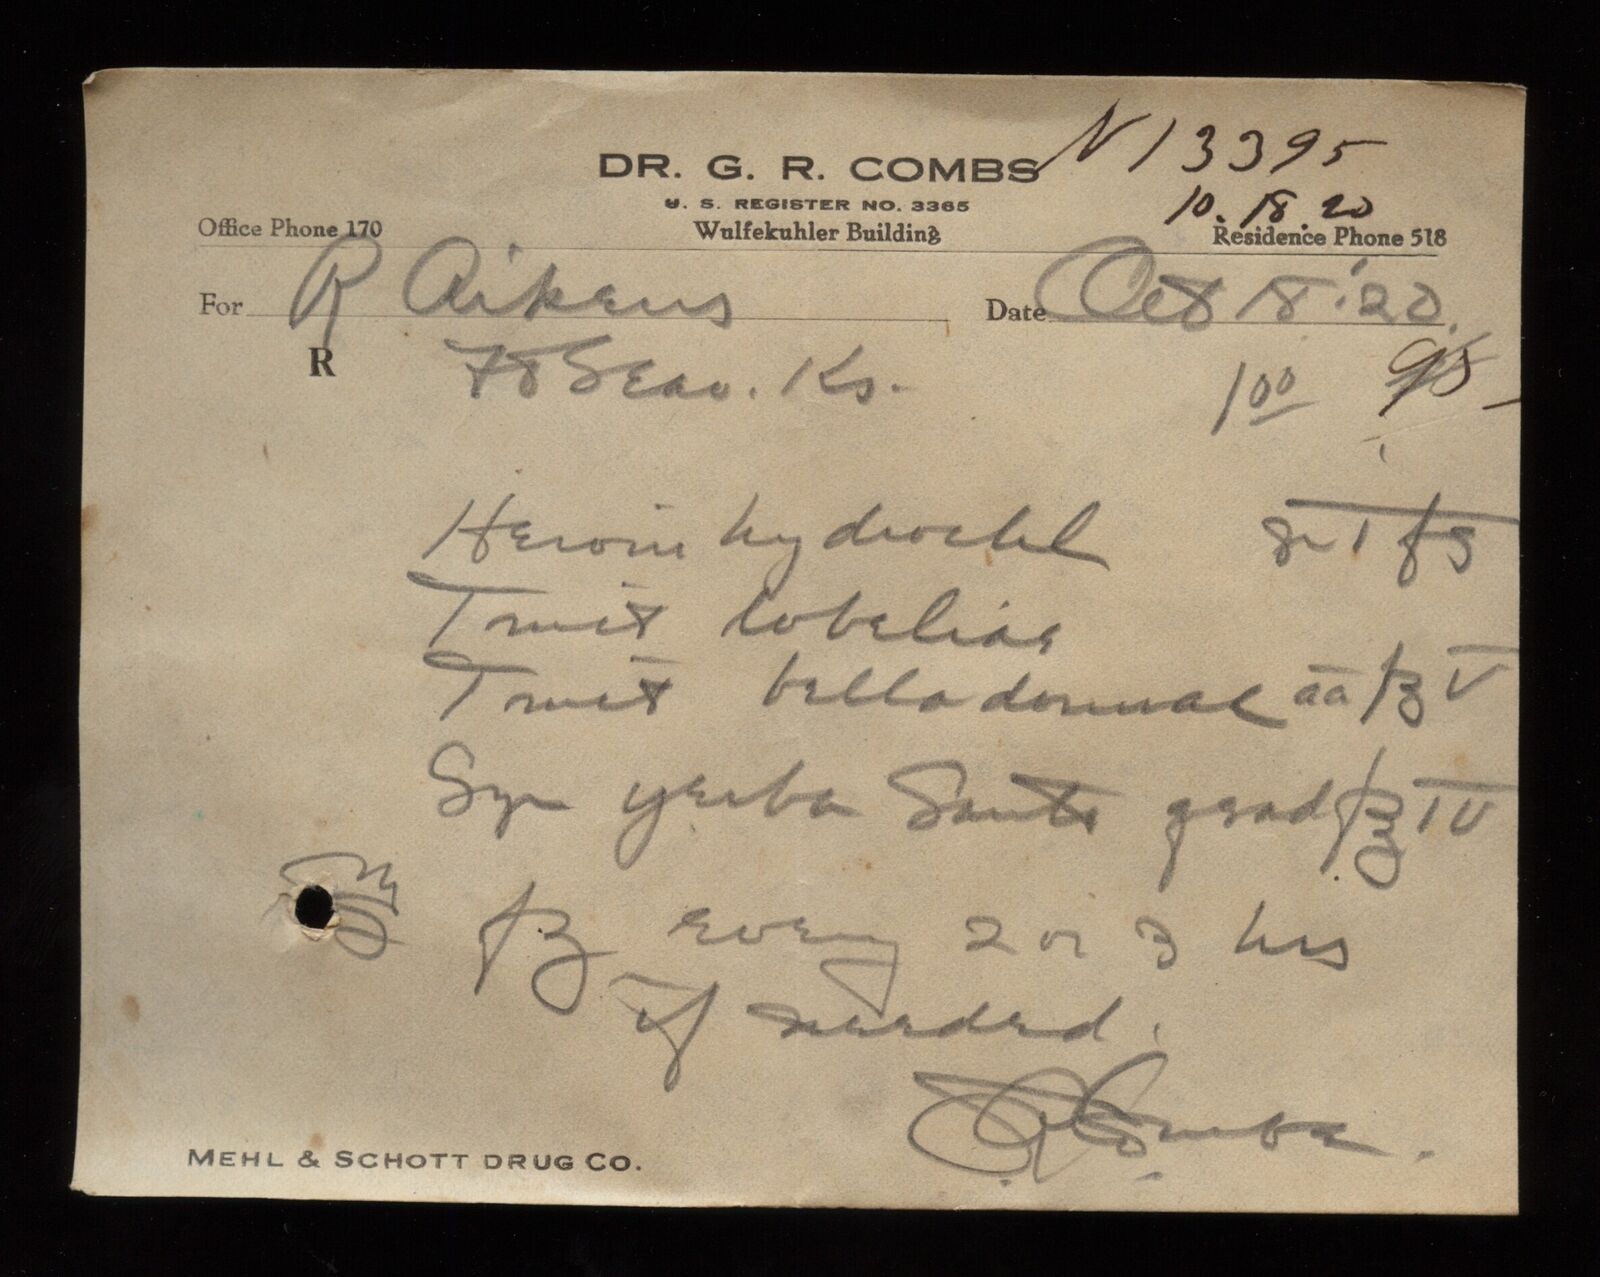 N 13395
DR. G. R. COMBS
U. S. REGISTER NO. 3365
10.18.20
Office Phone 170 Wulfekuhler Building Residence Phone 518
For R Aikens Date Oct 18 '20.
R Ft Leav. Ks. 1 00 95
Heroin hydrochl gr I
Tinct lobeliae
Tinct belladonnae aa fʒ V
Syr yerba Santa qsad f℥ IV
fʒ every 2 or 3 hrs
if needed.
G R Combs.
MEHL & SCHOTT DRUG CO.